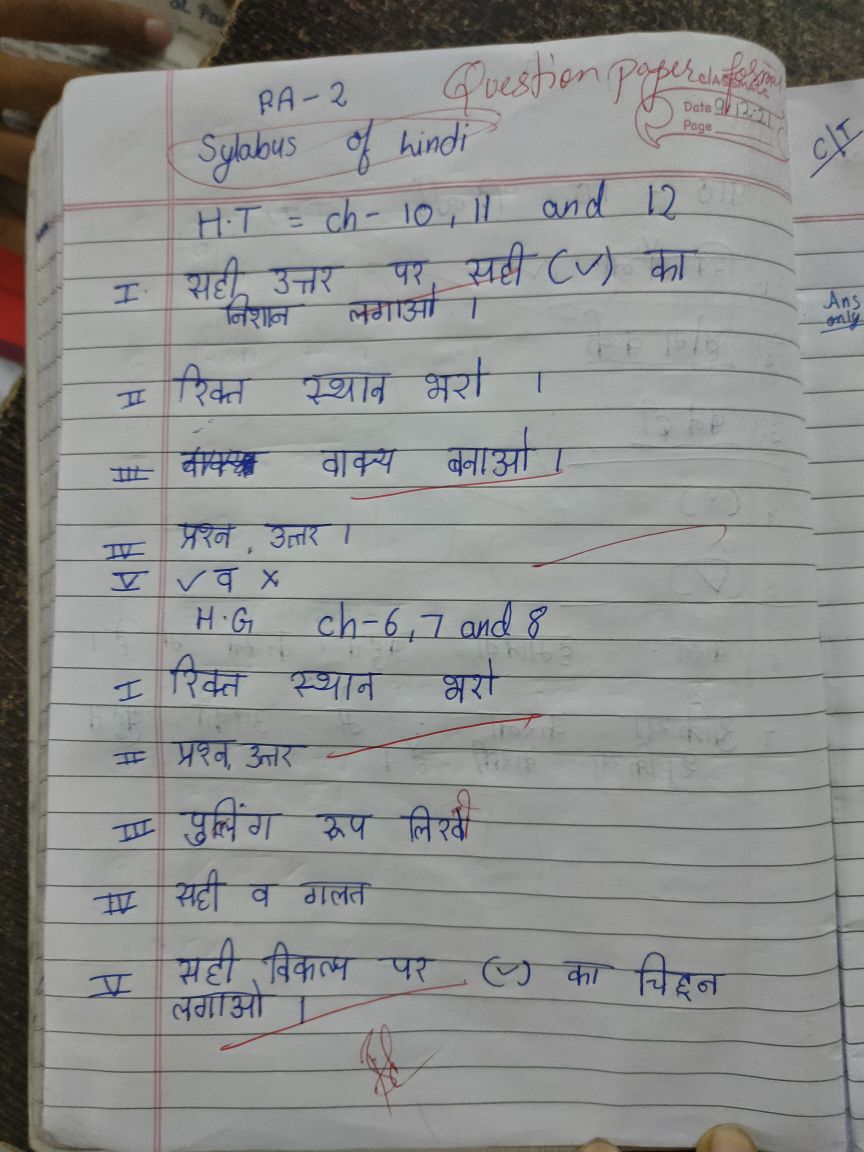 Question paper format
PA-2
classmate
Date 9/12.21
Page
Sylabus of hindi
C/T
H.T = ch- 10, 11 and 12
I. सही उत्तर पर सही (✓) का
निशान लगाओ ।
Ans
only
II रिक्त स्थान भरो ।
III वाक्य बनाओ ।
IV प्रश्न, उत्तर ।
V ✓ व ×
H.G ch-6, 7 and 8
I रिक्त स्थान भरो
II प्रश्न, उत्तर
III पुलिंग रूप लिखो
IV सही व गलत
V सही विकल्प पर (✓) का चिह्न
लगाओ ।